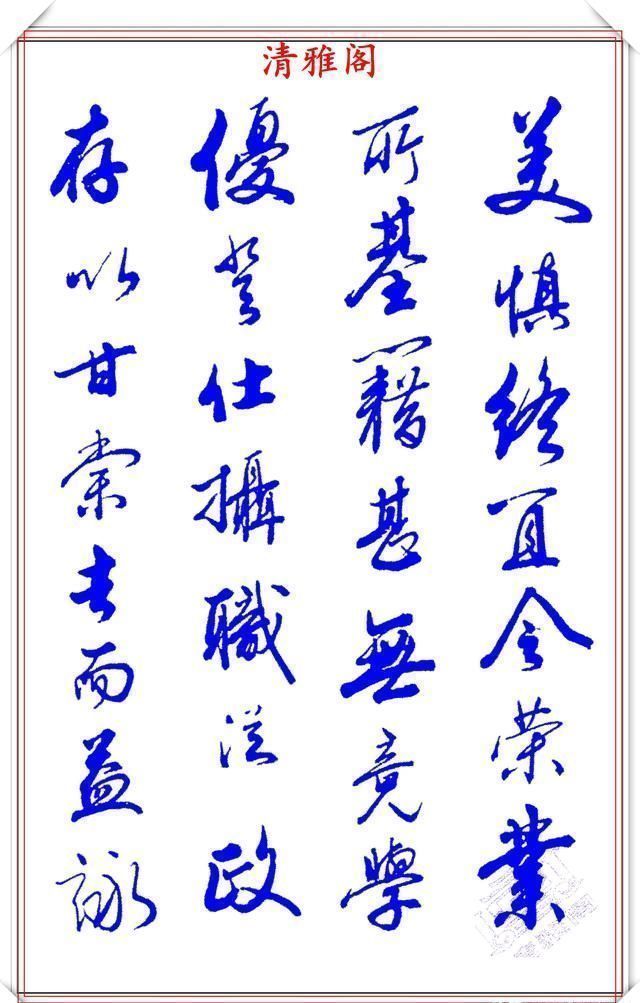 清雅阁
美慎终宜令荣業
所基籍甚無竟學
優登仕攝職從政
存以甘棠去而益詠